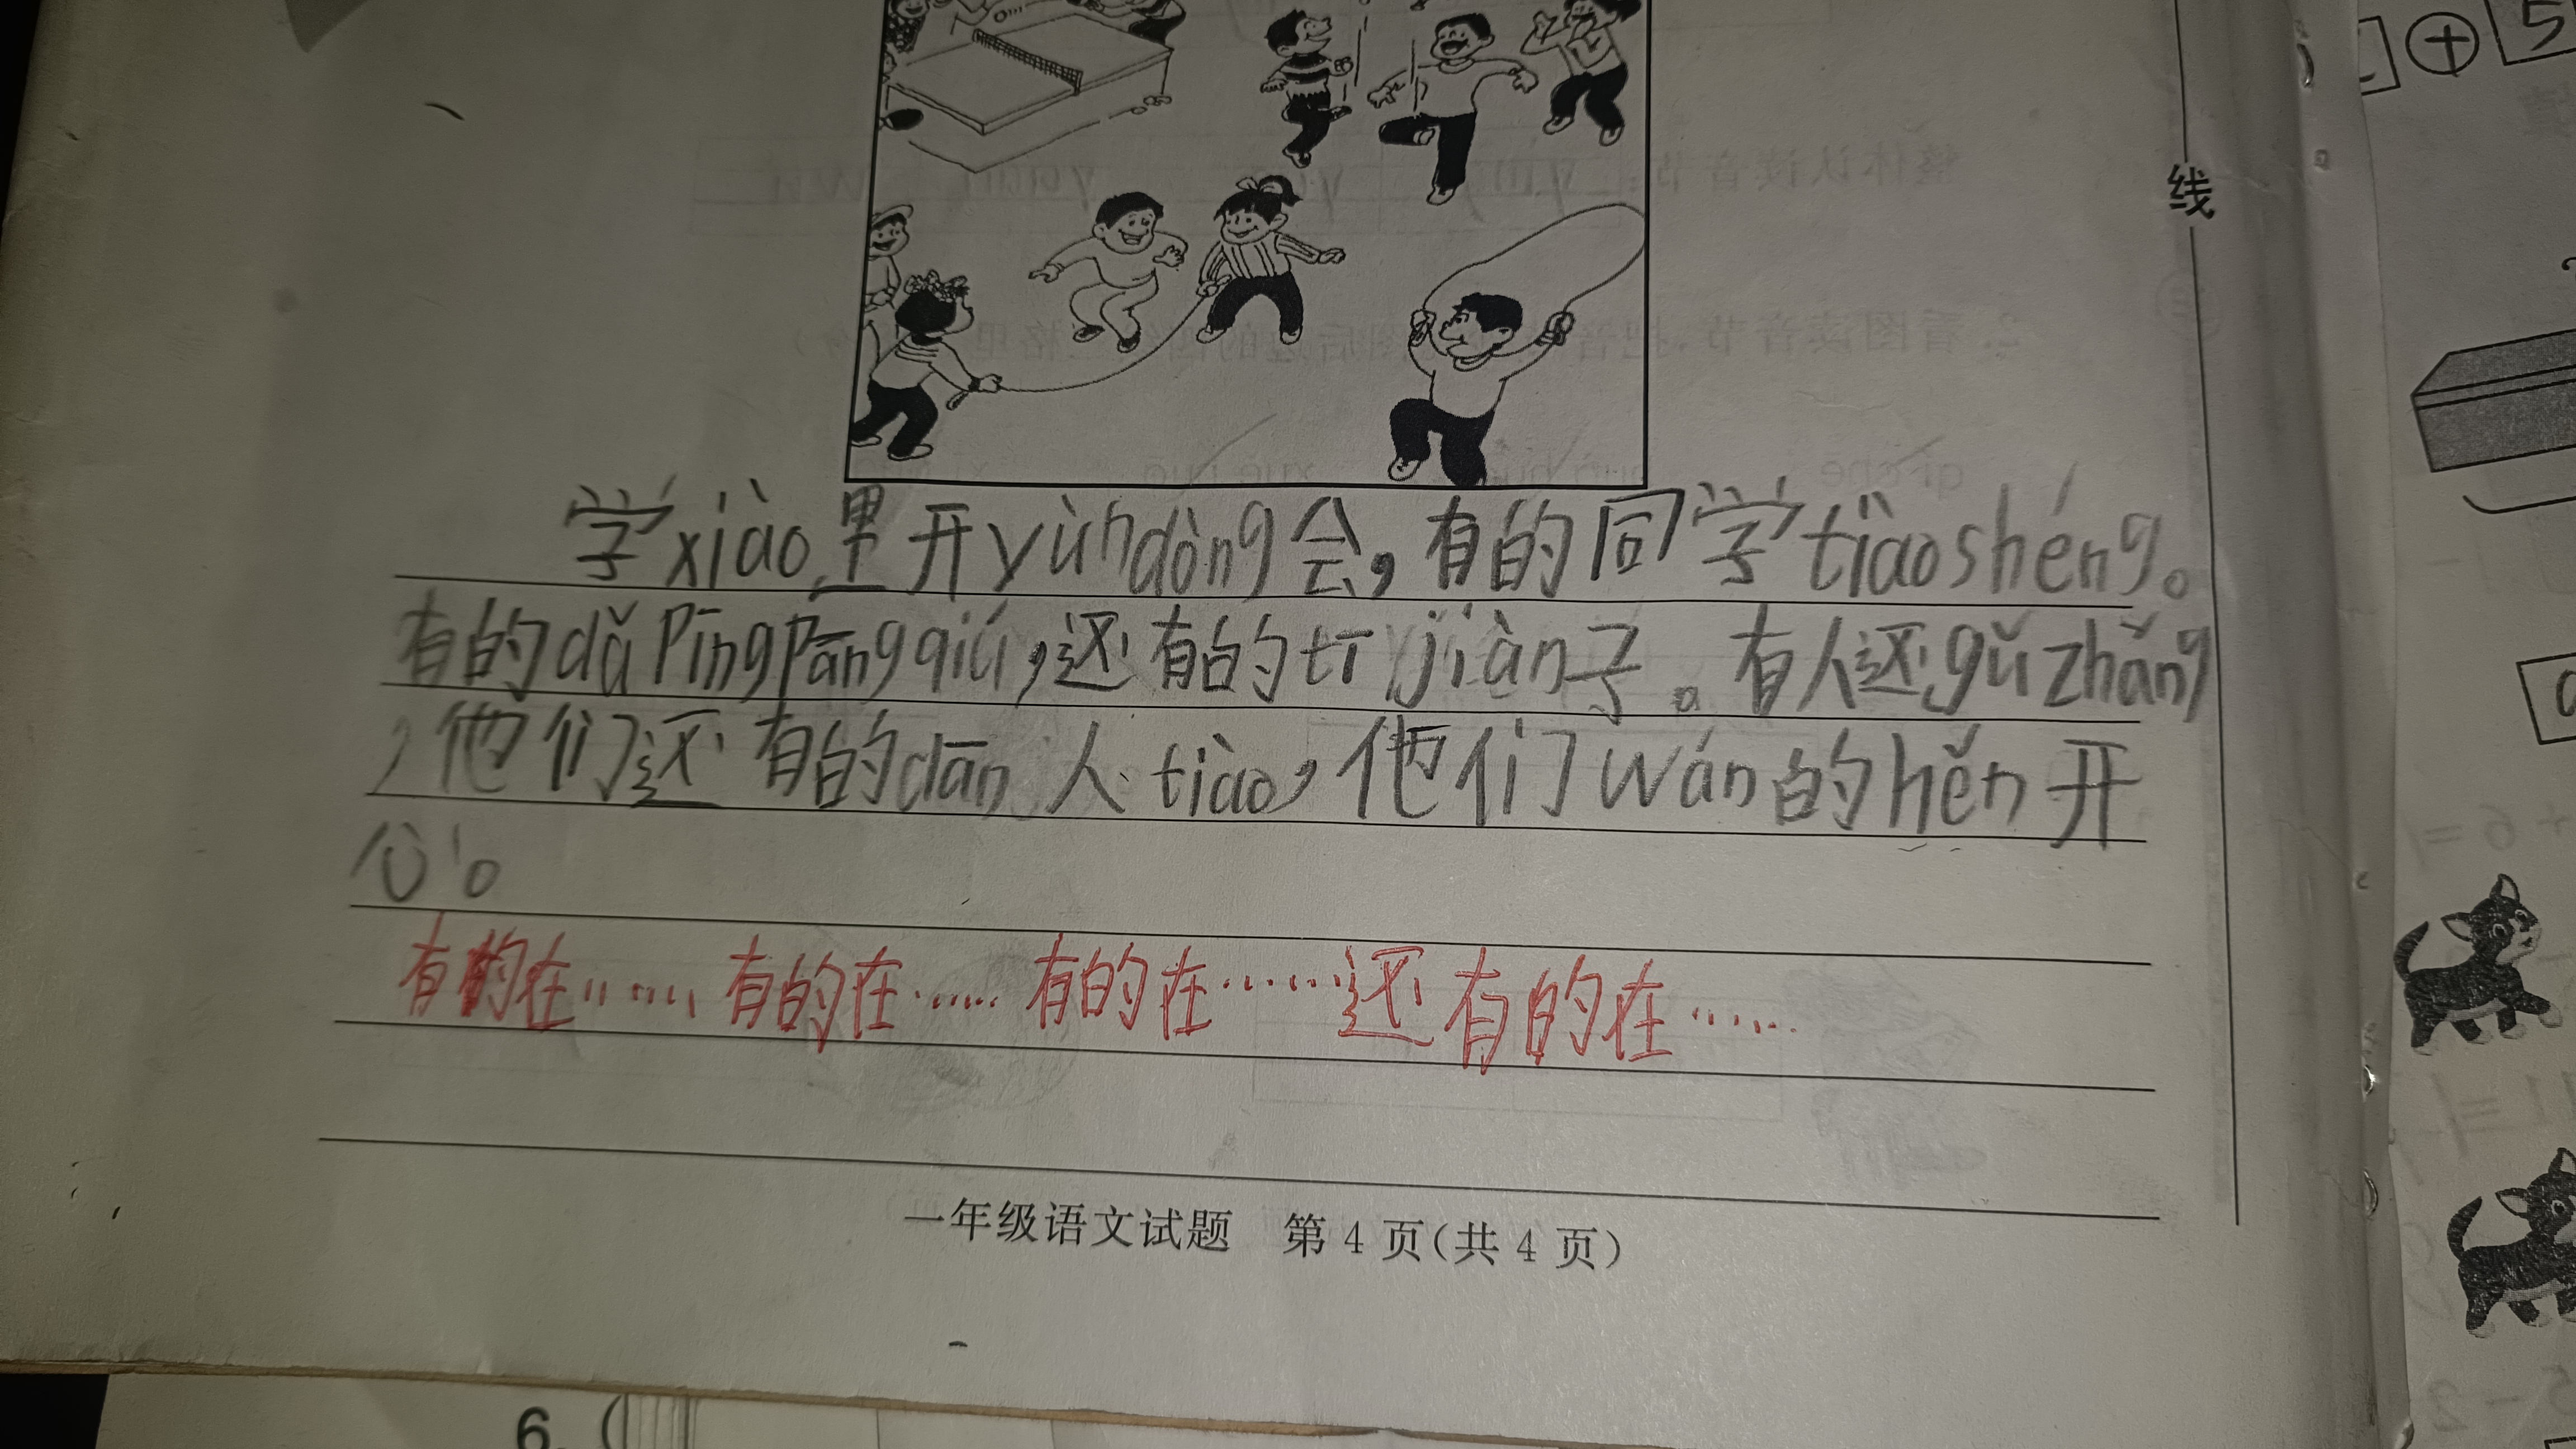 线
学xiào里开yùndòng会，有的同学tiàoshéng。
有的dǎ Pīngpāngqiú，还有的tī jiàn子。有人还gǔ zhǎng
，他们还有的dān人tiào，他们wán的hěn开
心。
有的在……有的在……有的在……还有的在……
一年级语文试题 第4页(共4页)
6. (
+ 5